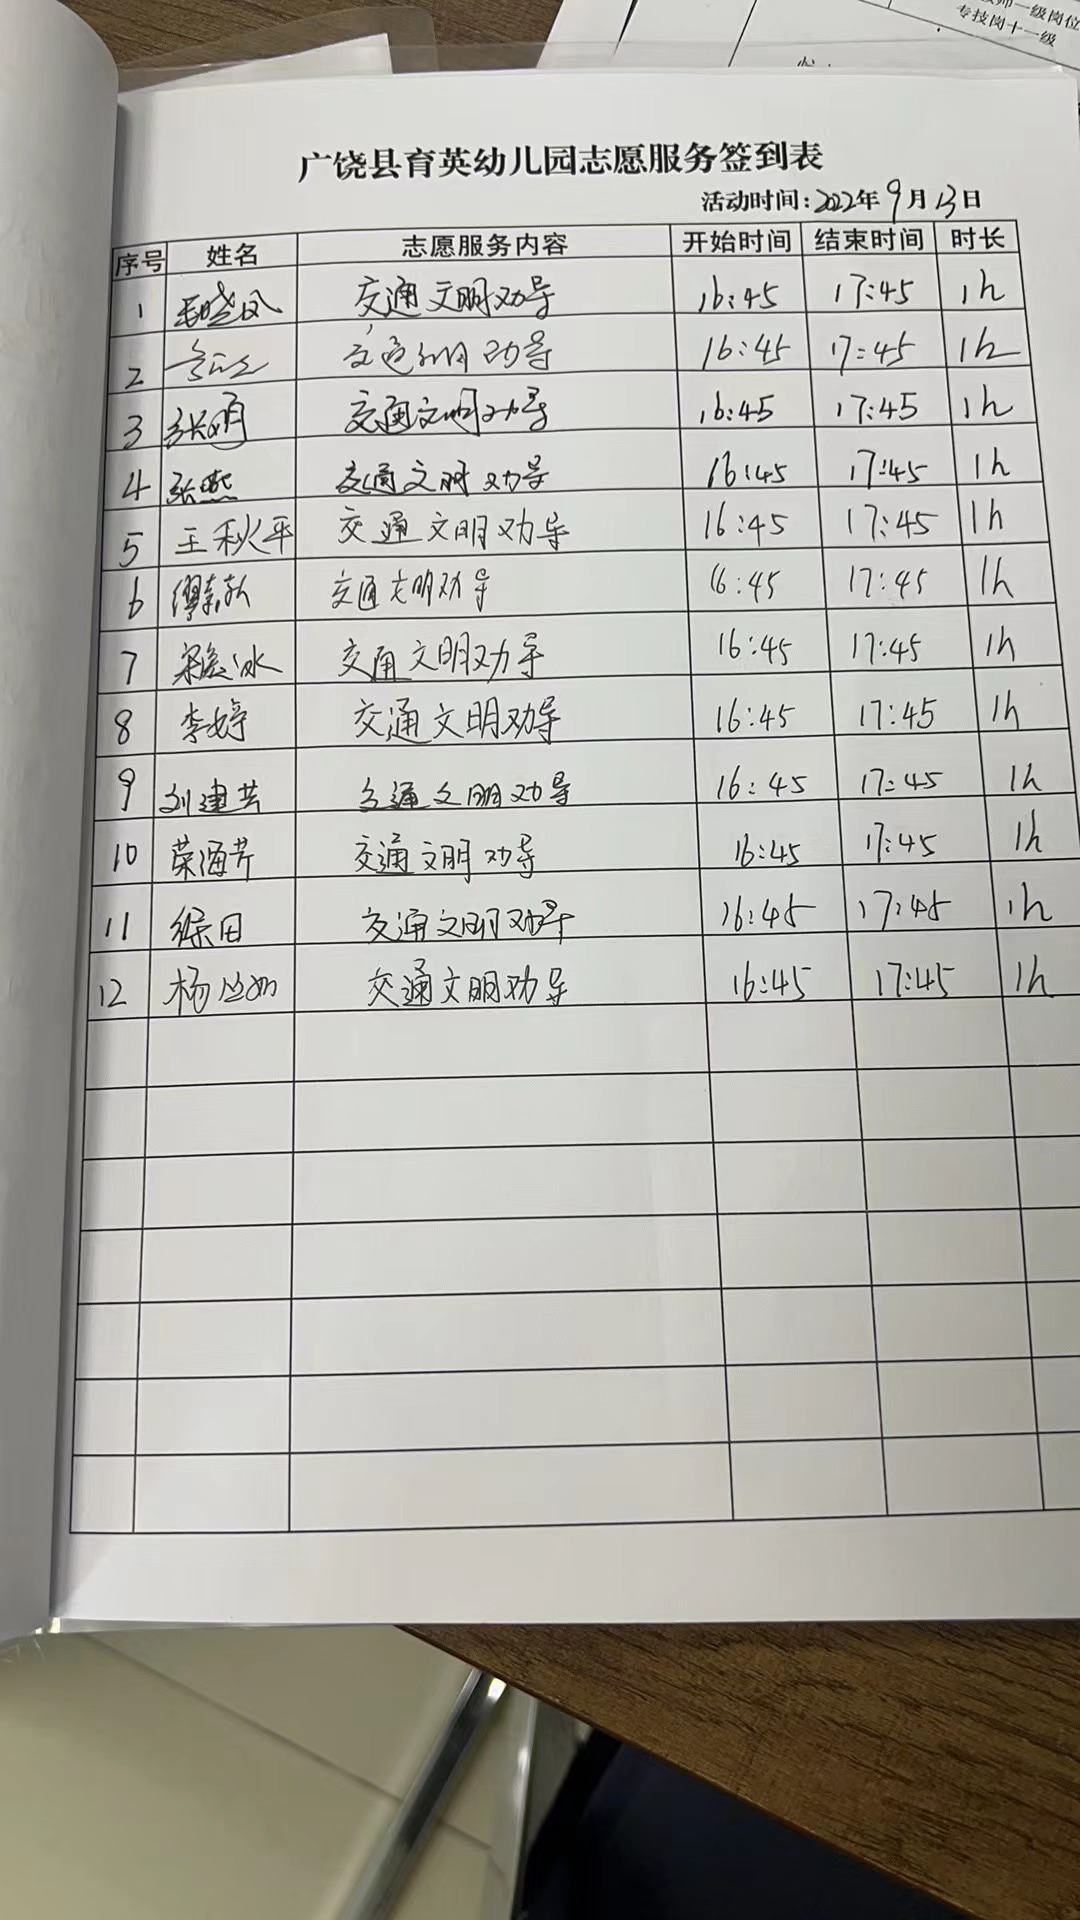 师一级岗位
专技岗十一级
广饶县育英幼儿园志愿服务签到表
活动时间:2022年9月13日
序号 姓名 志愿服务内容 开始时间 结束时间 时长
1 交通文明劝导 16:45 17:45 1h
2 交通文明劝导 16:45 17:45 1h
3 交通文明劝导 16:45 17:45 1h
4 张燕 交通文明劝导 16:45 17:45 1h
5 王秋平 交通文明劝导 16:45 17:45 1h
6 交通文明劝导 16:45 17:45 1h
7 交通文明劝导 16:45 17:45 1h
8 李婷 交通文明劝导 16:45 17:45 1h
9 刘建芸 交通文明劝导 16:45 17:45 1h
10 荣海芹 交通文明劝导 16:45 17:45 1h
11 交通文明劝导 16:45 17:45 1h
12 交通文明劝导 16:45 17:45 1h